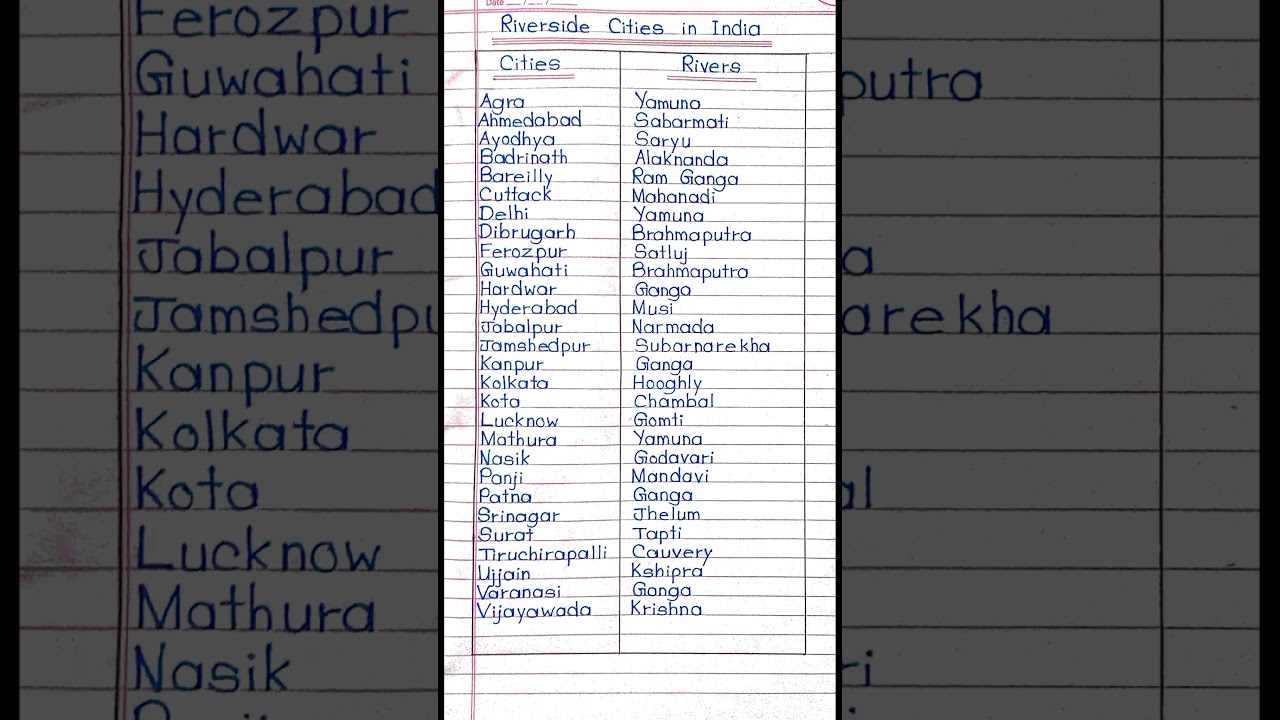 Date __/__/__
Riverside Cities in India
Cities Rivers
Agra Yamuna
Ahmedabad Sabarmati
Ayodhya Saryu
Badrinath Alaknanda
Bareilly Ram Ganga
Cuttack Mahanadi
Delhi Yamuna
Dibrugarh Brahmaputra
Ferozpur Satluj
Guwahati Brahmaputra
Hardwar Ganga
Hyderabad Musi
Jabalpur Narmada
Jamshedpur Subarnarekha
Kanpur Ganga
Kolkata Hooghly
Kota Chambal
Lucknow Gomti
Mathura Yamuna
Nasik Godavari
Panji Mandavi
Patna Ganga
Srinagar Jhelum
Surat Tapti
Tiruchirapalli Cauvery
Ujjain Kshipra
Varanasi Ganga
Vijayawada Krishna
Ferozpur
Guwahati putra
Hardwar
Hyderabad
Jabalpur a
Jamshedpu arekha
Kanpur
Kolkata
Kota al
Lucknow
Mathura
Nasik ri